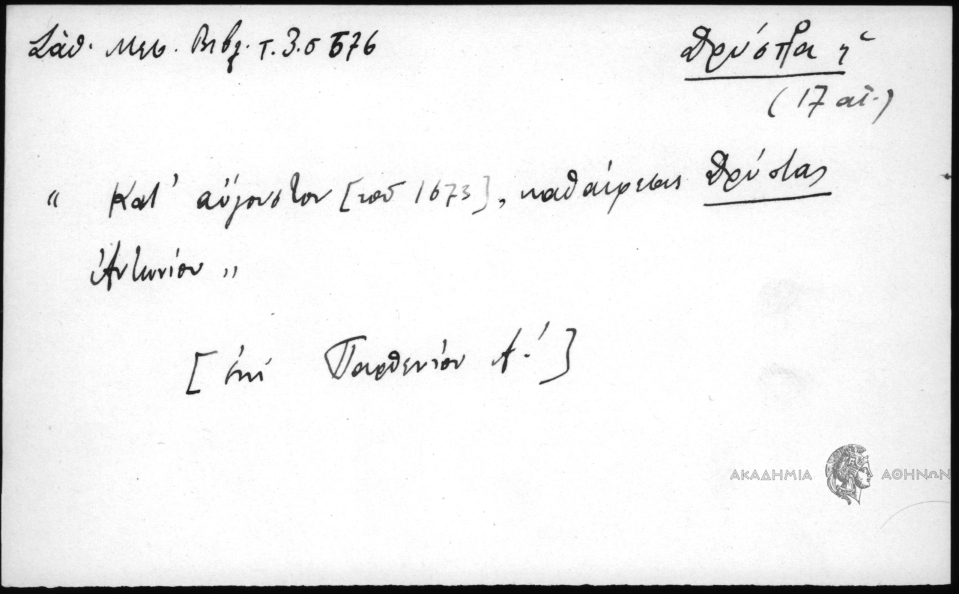 Σάθ. Μεσ. Βιβλ. τ. 3. σ 576
Δρύστα ἡ
(17 αἰ.)
“ Κατ' αὔγουστον [τοῦ 1673], καθαίρεσις Δρύστας
Ἀντωνίου „
[ ἐπὶ Παρθενίου Δ.' ]
ΑΚΑΔΗΜΙΑ ΑΘΗΝΩΝ